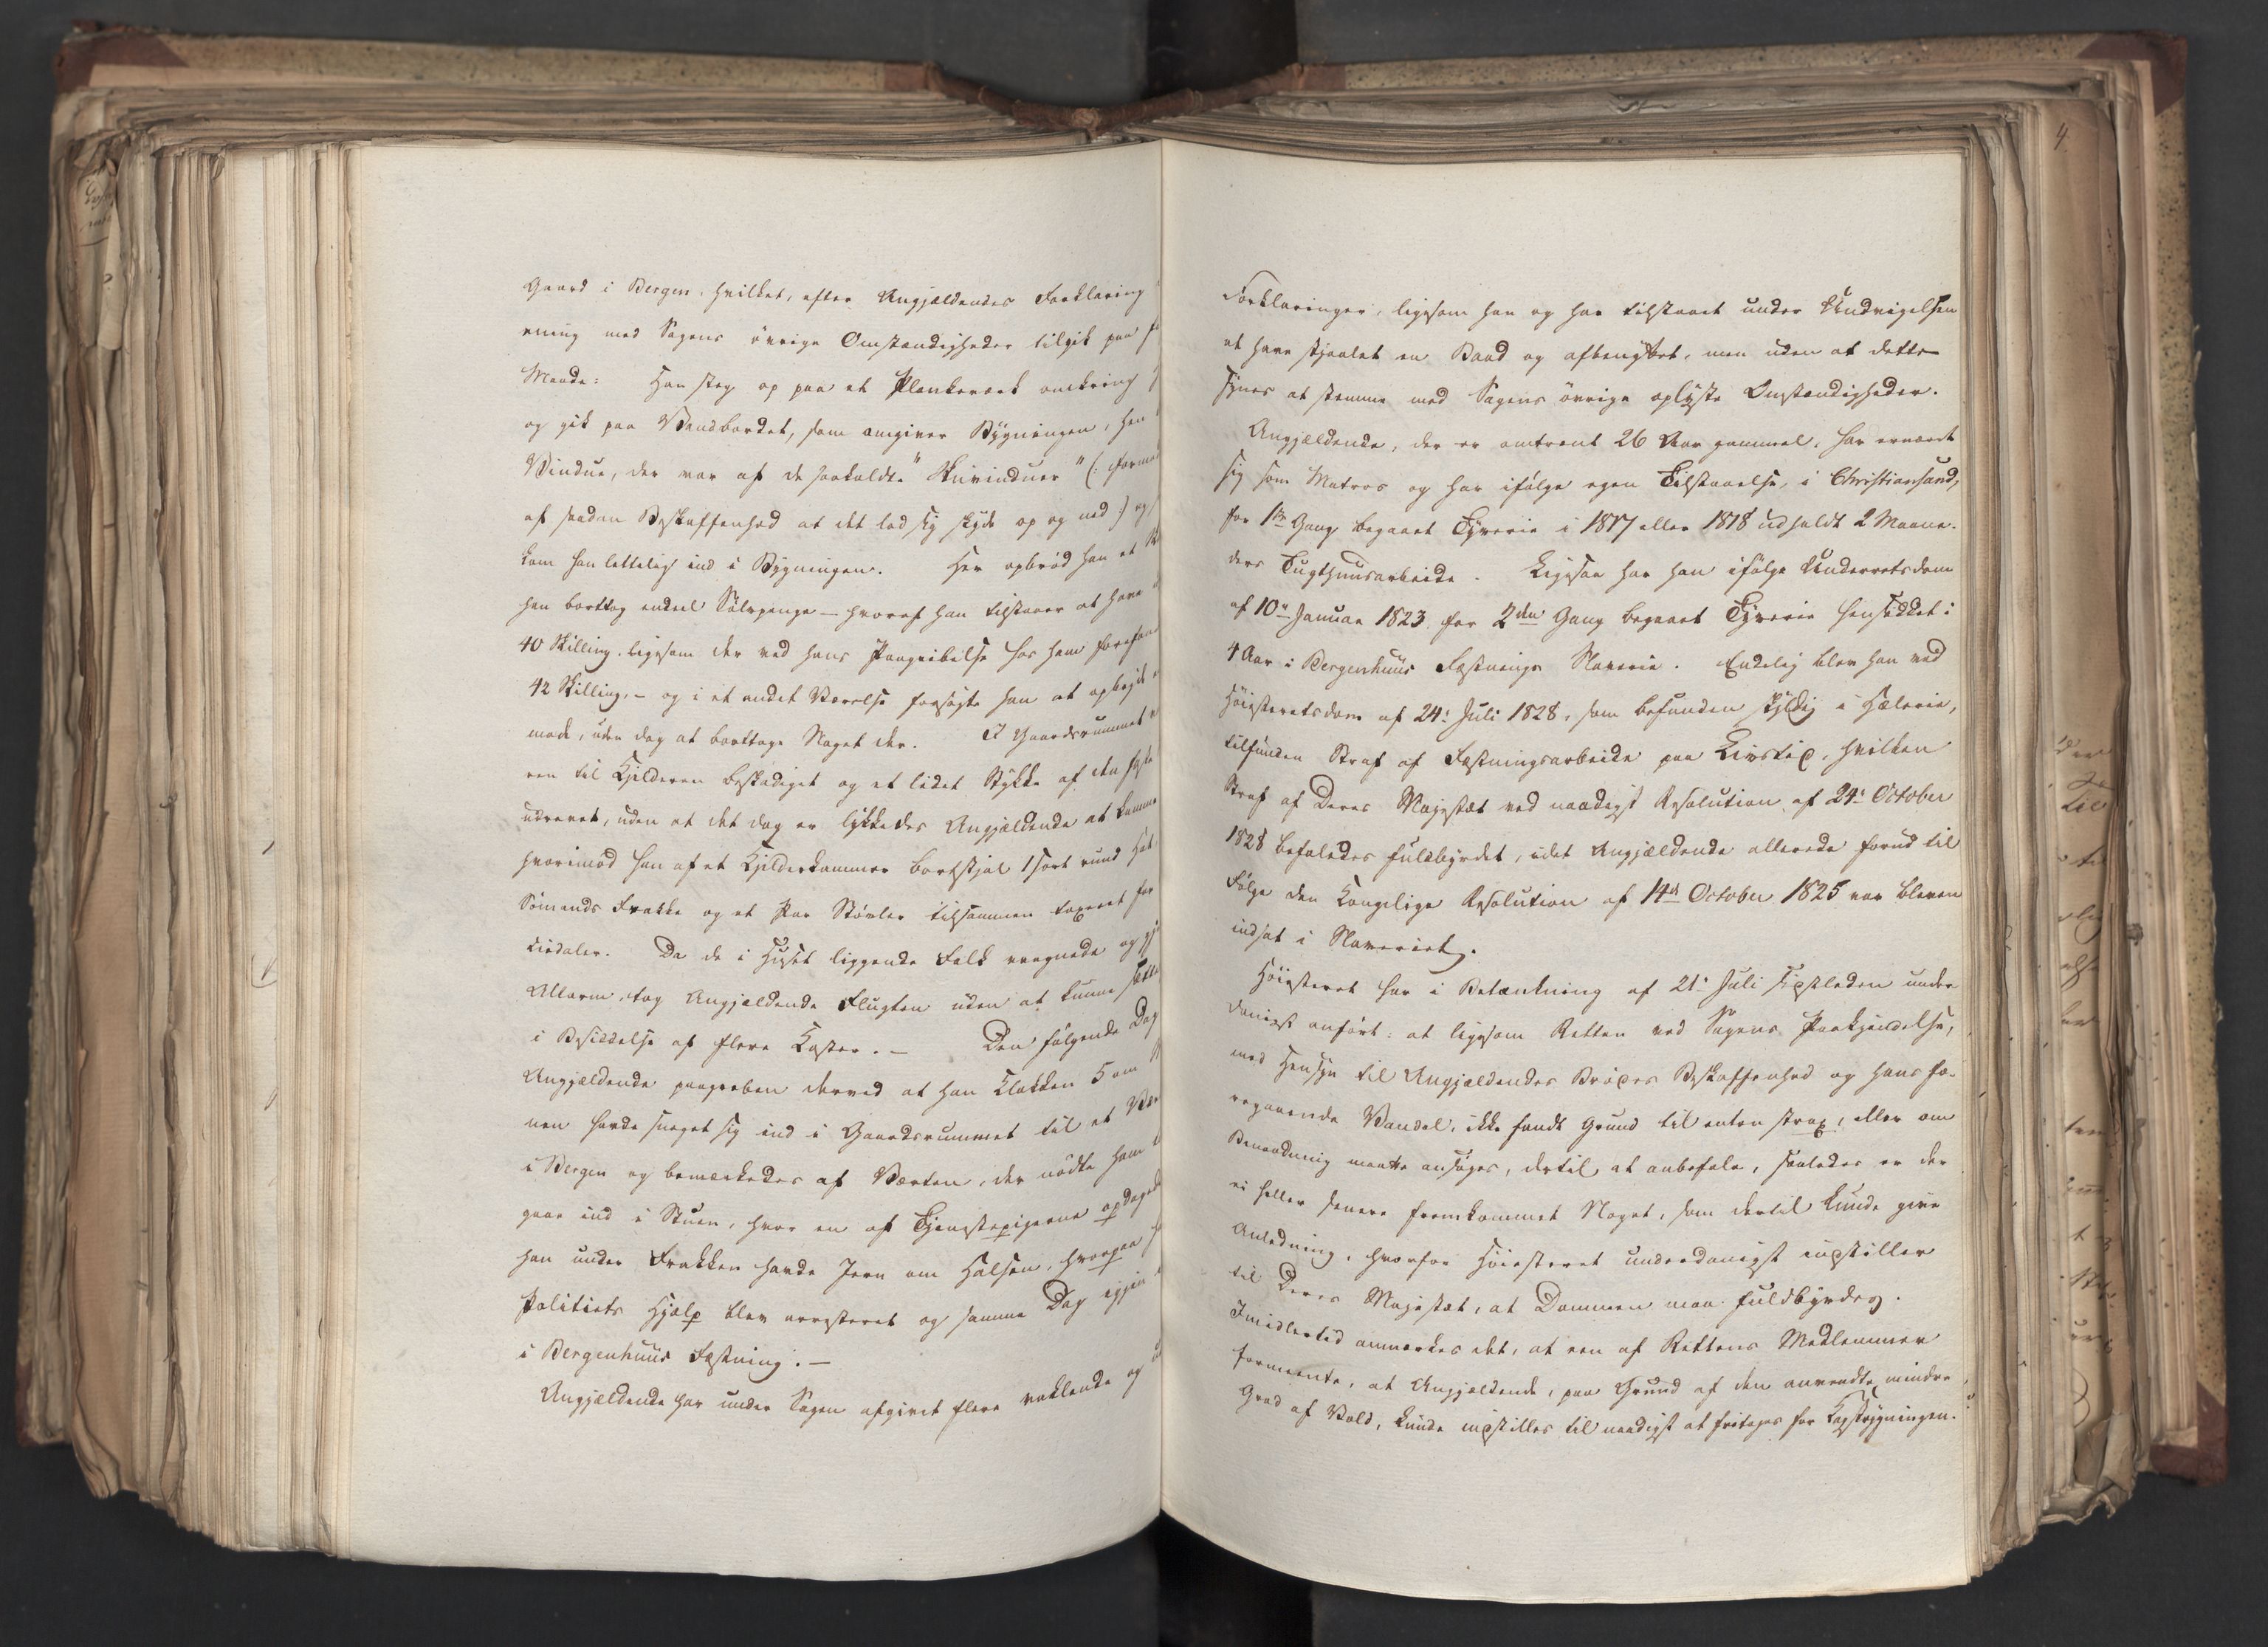 Gaard i Bergen, hvilket, efter Angjældendes Forklaring
ening med Sagens øvrige Omstændigheder tilgik paa
Maade: Han steg op paa et Plankeværk omkring
og gik paa Vandbordet, som omgiver Bygningen, hen
Vindue, der var af de saakaldte "Skuvinduer" (:
af saadan Beskaffenhed at det lod sig skyde op og ned:) og
kom han lettelig ind i Bygningen. Her opbrød han et
han borttog endeel Sølvpenge – hvoraf han tilstaaer at have
40 Skilling, ligesom der ved hans Paagribelse hos ham forefan
42 Skilling, – og i et andet Værelse forsøgte han at opbryde
mode, uden dog at borttage Noget der. I Gaardsrummet
ren til Kjelderen beskadiget og et lidet Stykke af den
udrevet, uden at det dog er lykkedes Angjældende at komme
hvorimod han af et Kjelderkammer bortstjal 1 sort rund Hat
Sømands Frakke og et Par Støvler tilsammen taxeret for
ciedaler. Da de i Huset liggende Folk vaagnede og
Allarm, tog Angjældende Flugten uden at kunne sætte
i Besiddelse af flere Koster. – Den følgende Dag
Angjældende paagreben derved at han Klokken 5 om
nen havde sneget sig ind i Gaardsrummet til et
i Bergen og bemærkedes af Værten, der nødte ham
gaae ind i Stuen, hvor en af Tjenestepigerne opdagede
han under Frakken havde Jern om Halsen, hvorpaa
Politiets Hjælp blev arresteret og samme Dag igjen
i Bergenhuus Fæstning. –
Angjældende har under Sagen afgivet flere vaklende og
Forklaringer, ligesom han og har tilstaaet under Undvigelsen
at have stjaalet en Baad og afbenyttet, men uden at dette
synes at stemme med Sagens øvrige oplyste Omstændigheder.
Angjældende, der er omtrent 26 Aar gammel, har ernæret
sig som Matros og har ifølge egen Tilstaaelse, i Christiansand,
for 1ste Gang begaaet Tyverie i 1817 eller 1818 udholdt 2 Maane-
ders Tugthuusarbeide. Ligesaa har han ifølge Underretsdom
af 10de Januar 1823 for 2den Gang begaaet Tyverie hensiddet i
4 Aar i Bergenhuus Fæstnings Slaverie. Endelig blev han ved
Høiesteretsdom af 24de Juli 1828, som befunden skyldig i Hælerie,
tilfunden Straf af Fæstningsarbeide paa Livstid, hvilken
Straf af Deres Majestæt ved naadigst Resolution af 24de October
1828 befaledes fuldbyrdet, idet Angjældende allerede forud til
Følge den Kongelige Resolution af 14de October 1825 var bleven
indsat i Slaveriet.
Høiesteret har i Betænkning af 21de Juli sidstleden under-
danigst anført: at ligesom Retten ved Sagens Paakjendelse,
med Hensyn til Angjældendes Brødes Beskaffenhed og hans fo-
regaaende Vandel, ikke fandt Grund til enten strax, eller om
Benaadning maatte ansøges, dertil at anbefale, saaledes er der
ei heller senere fremkommet Noget, som dertil kunde give
Anledning, hvorfor Høiesteret underdanigst indstiller
til Deres Majestæt, at Dommen maa fuldbyrdes.
Imidlertid anmærkes det, at een af Rettens Medlemmer
formeente, at Angjældende, paa Grund af den anvendte mindre
Grad af Vold, kunde indstilles til naadigst at fritages for Kagstrygningen.
4